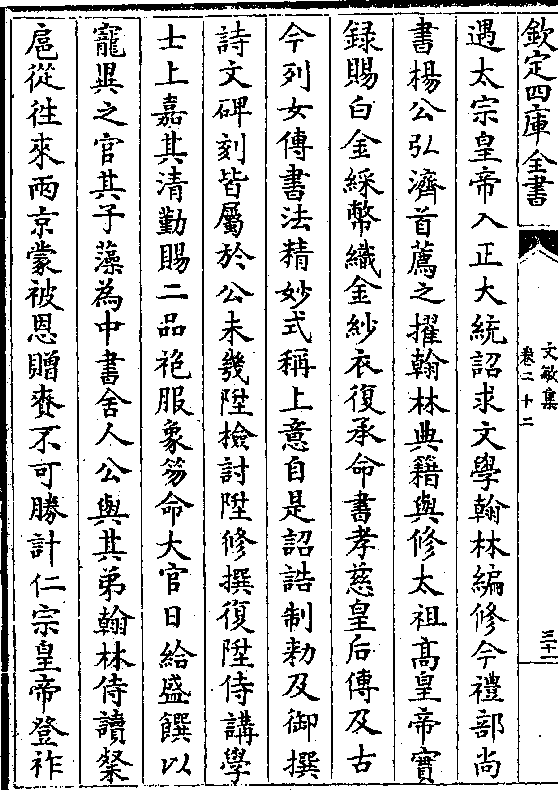 欽定四庫全書
文敏集
卷二十二
三十一
遇太宗皇帝入正大統詔求文學翰林編修今禮部尚
書楊公弘濟首薦之擢翰林典籍與修太祖髙皇帝寳
録賜白金綵幣織金紗衣復承命書孝慈皇后傳及古
今列女傳書法精妙式稱上意自是詔誥制勅及御撰
詩文碑刻皆屬於公未幾陞檢討陞修撰復陞侍講學
士上嘉其清勤賜二品袍服象笏命大官日給盛饌以
寵異之官其子藻為中書舍人公與其弟翰林侍讀粲
扈從往來兩京蒙被恩贈賚不可勝計仁宗皇帝登祚